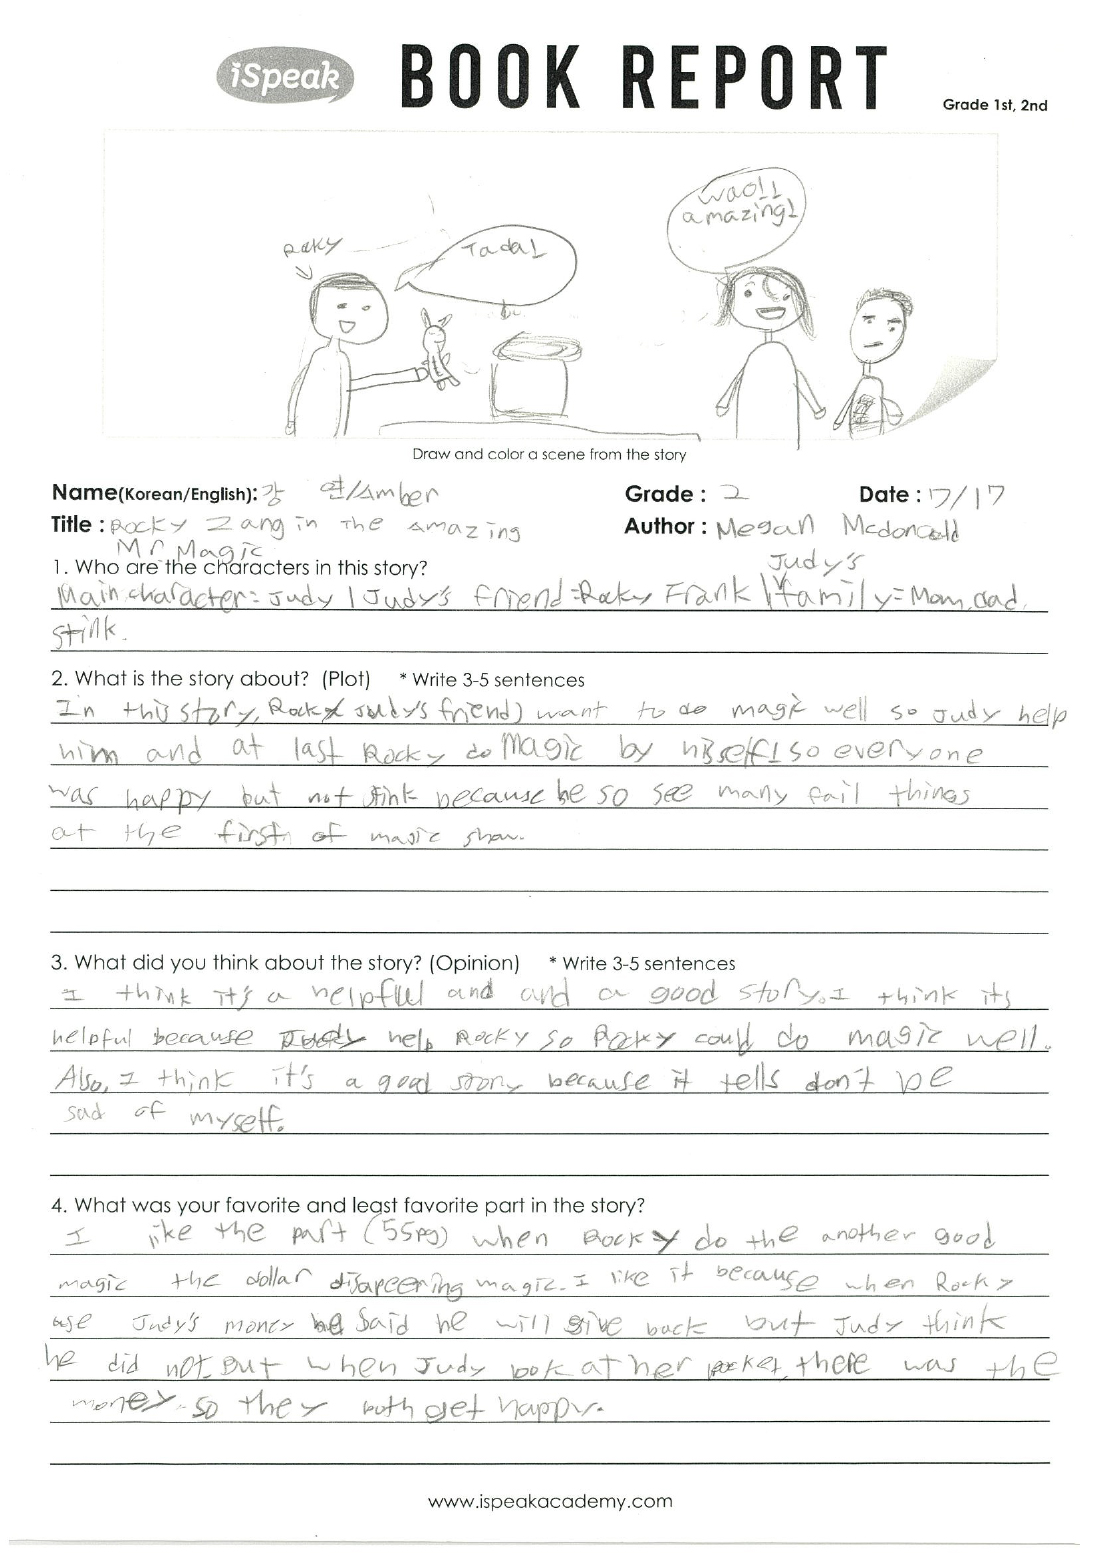 iSpeak BOOK REPORT
Grade 1st, 2nd
Waol!
amazing!
Rocky
Tada!
Draw and color a scene from the story
Name(Korean/English): 강 연/Amber Grade : 2 Date : 7/17
Title : Rocky Zang in the amazing Author : Megan Mcdonald
Mr Magic
1. Who are the characters in this story?
Judy's
Main character= Judy | Judy's friend=Rocky Frank | family=Mom, dad,
stink.
2. What is the story about? (Plot) * Write 3-5 sentences
In this story, Rocky(Judy's friend) want to do magic well so Judy help
him and at last Rocky do Magic by hisself! so everyone
was happy but not stink because he so see many fail things
at the first of magic show.
3. What did you think about the story? (Opinion) * Write 3-5 sentences
I think it's a helpful and and a good story. I think its
helpful because Judy help Rocky so Rocky could do magic well.
Also, I think it's a good story because it tells don't be
sad of myself.
4. What was your favorite and least favorite part in the story?
I like the part (55pg) when Rocky do the another good
magic the dollar disapeering magic. I like it because when Rocky
use Judy's money he said he will give back but Judy think
he did not. But when Judy look at her pocket, there was the
money. so they both get happy.
www.ispeakacademy.com